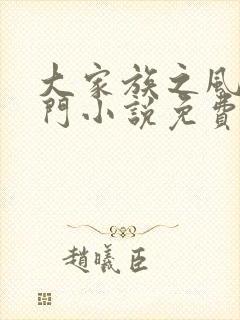 大家族之風
門小說免費
趙曦臣